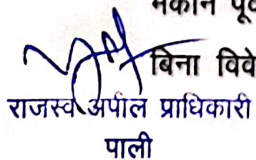 मकान पूर्व
बिना विवे
राजस्व अपील प्राधिकारी
पाली